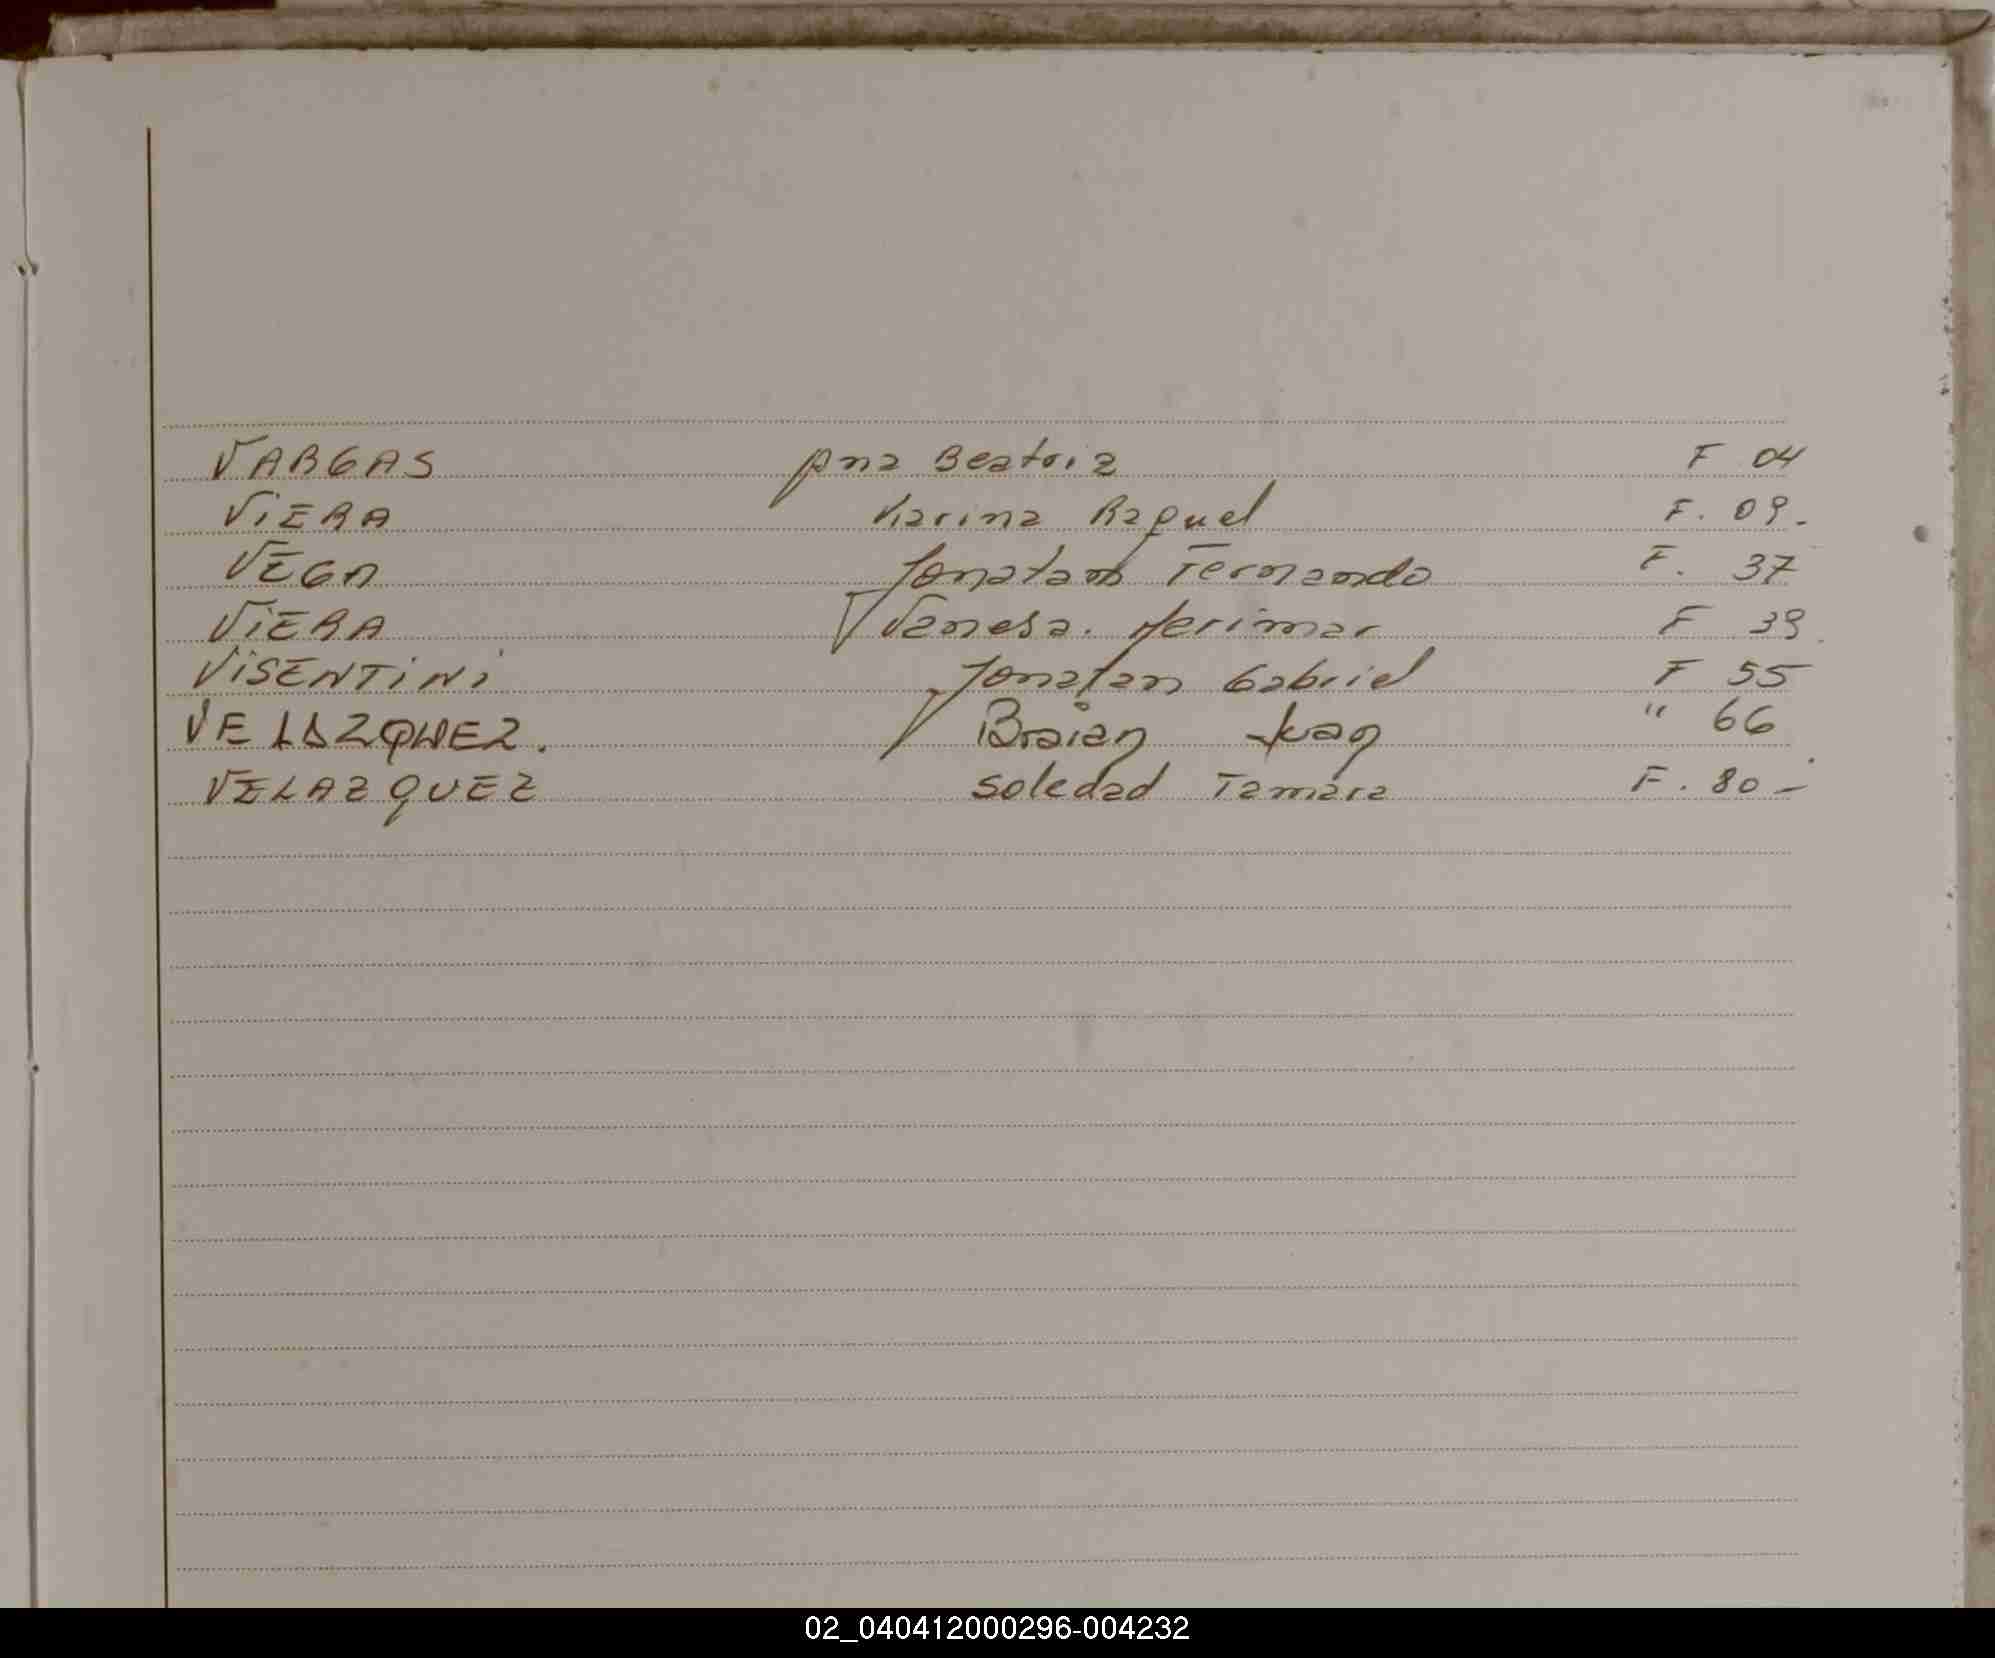 VARGAS Ana Beatriz F 04
VIERA Karina Raquel F. 09.
VEGA Jonatam Fernando F. 37
VIERA Vanesa. Merimar F 39.
VISENTINI Jonatan Gabriel F 55
VELAZQUEZ. Braian Juan " 66
VELAZQUEZ Soledad Tamara F. 80 -
02_040412000296-004232